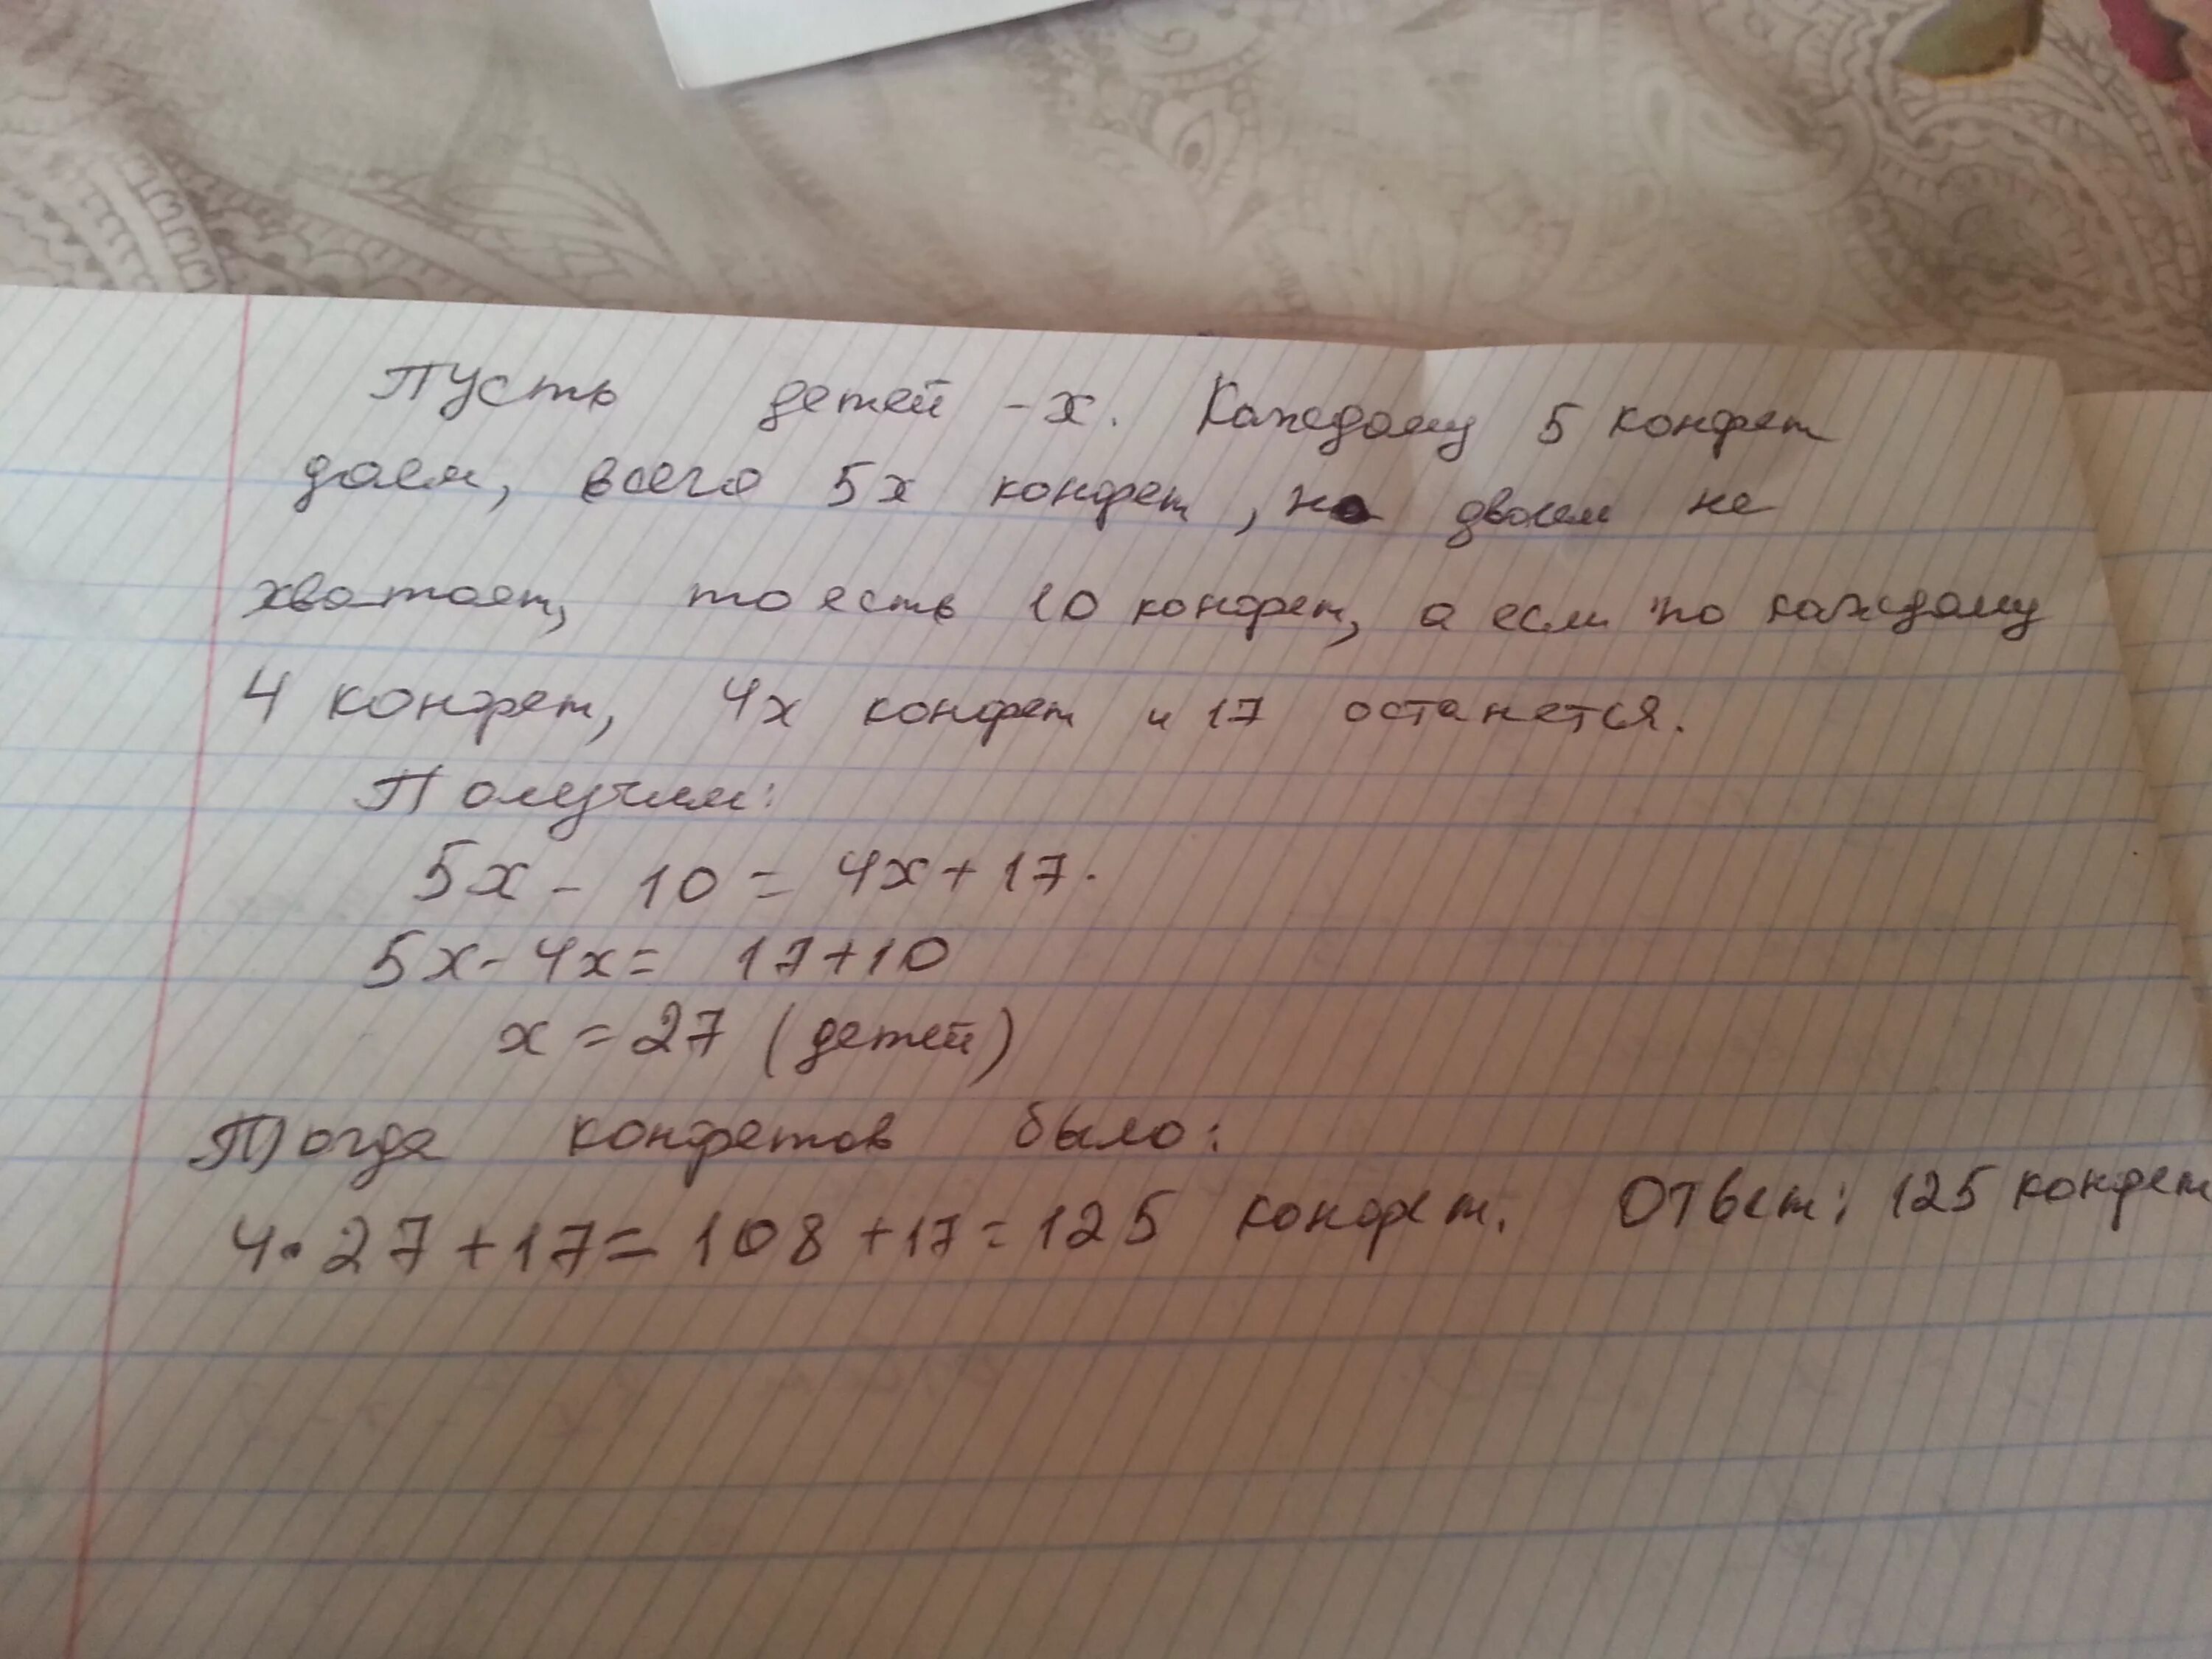 Пусть детей - х. Каждому 5 конфет
даем, всего 5х конфет, но двоем не
хватает, то есть 10 конфет, а если по каждому
4 конфет, 4х конфет и 17 останется.
Получим:
5х - 10 = 4х + 17.
5х - 4х = 17 + 10
х = 27 (детей)
Тогда конфетов было:
4 • 27 + 17 = 108 + 17 = 125 конфет. Ответ: 125 конфет